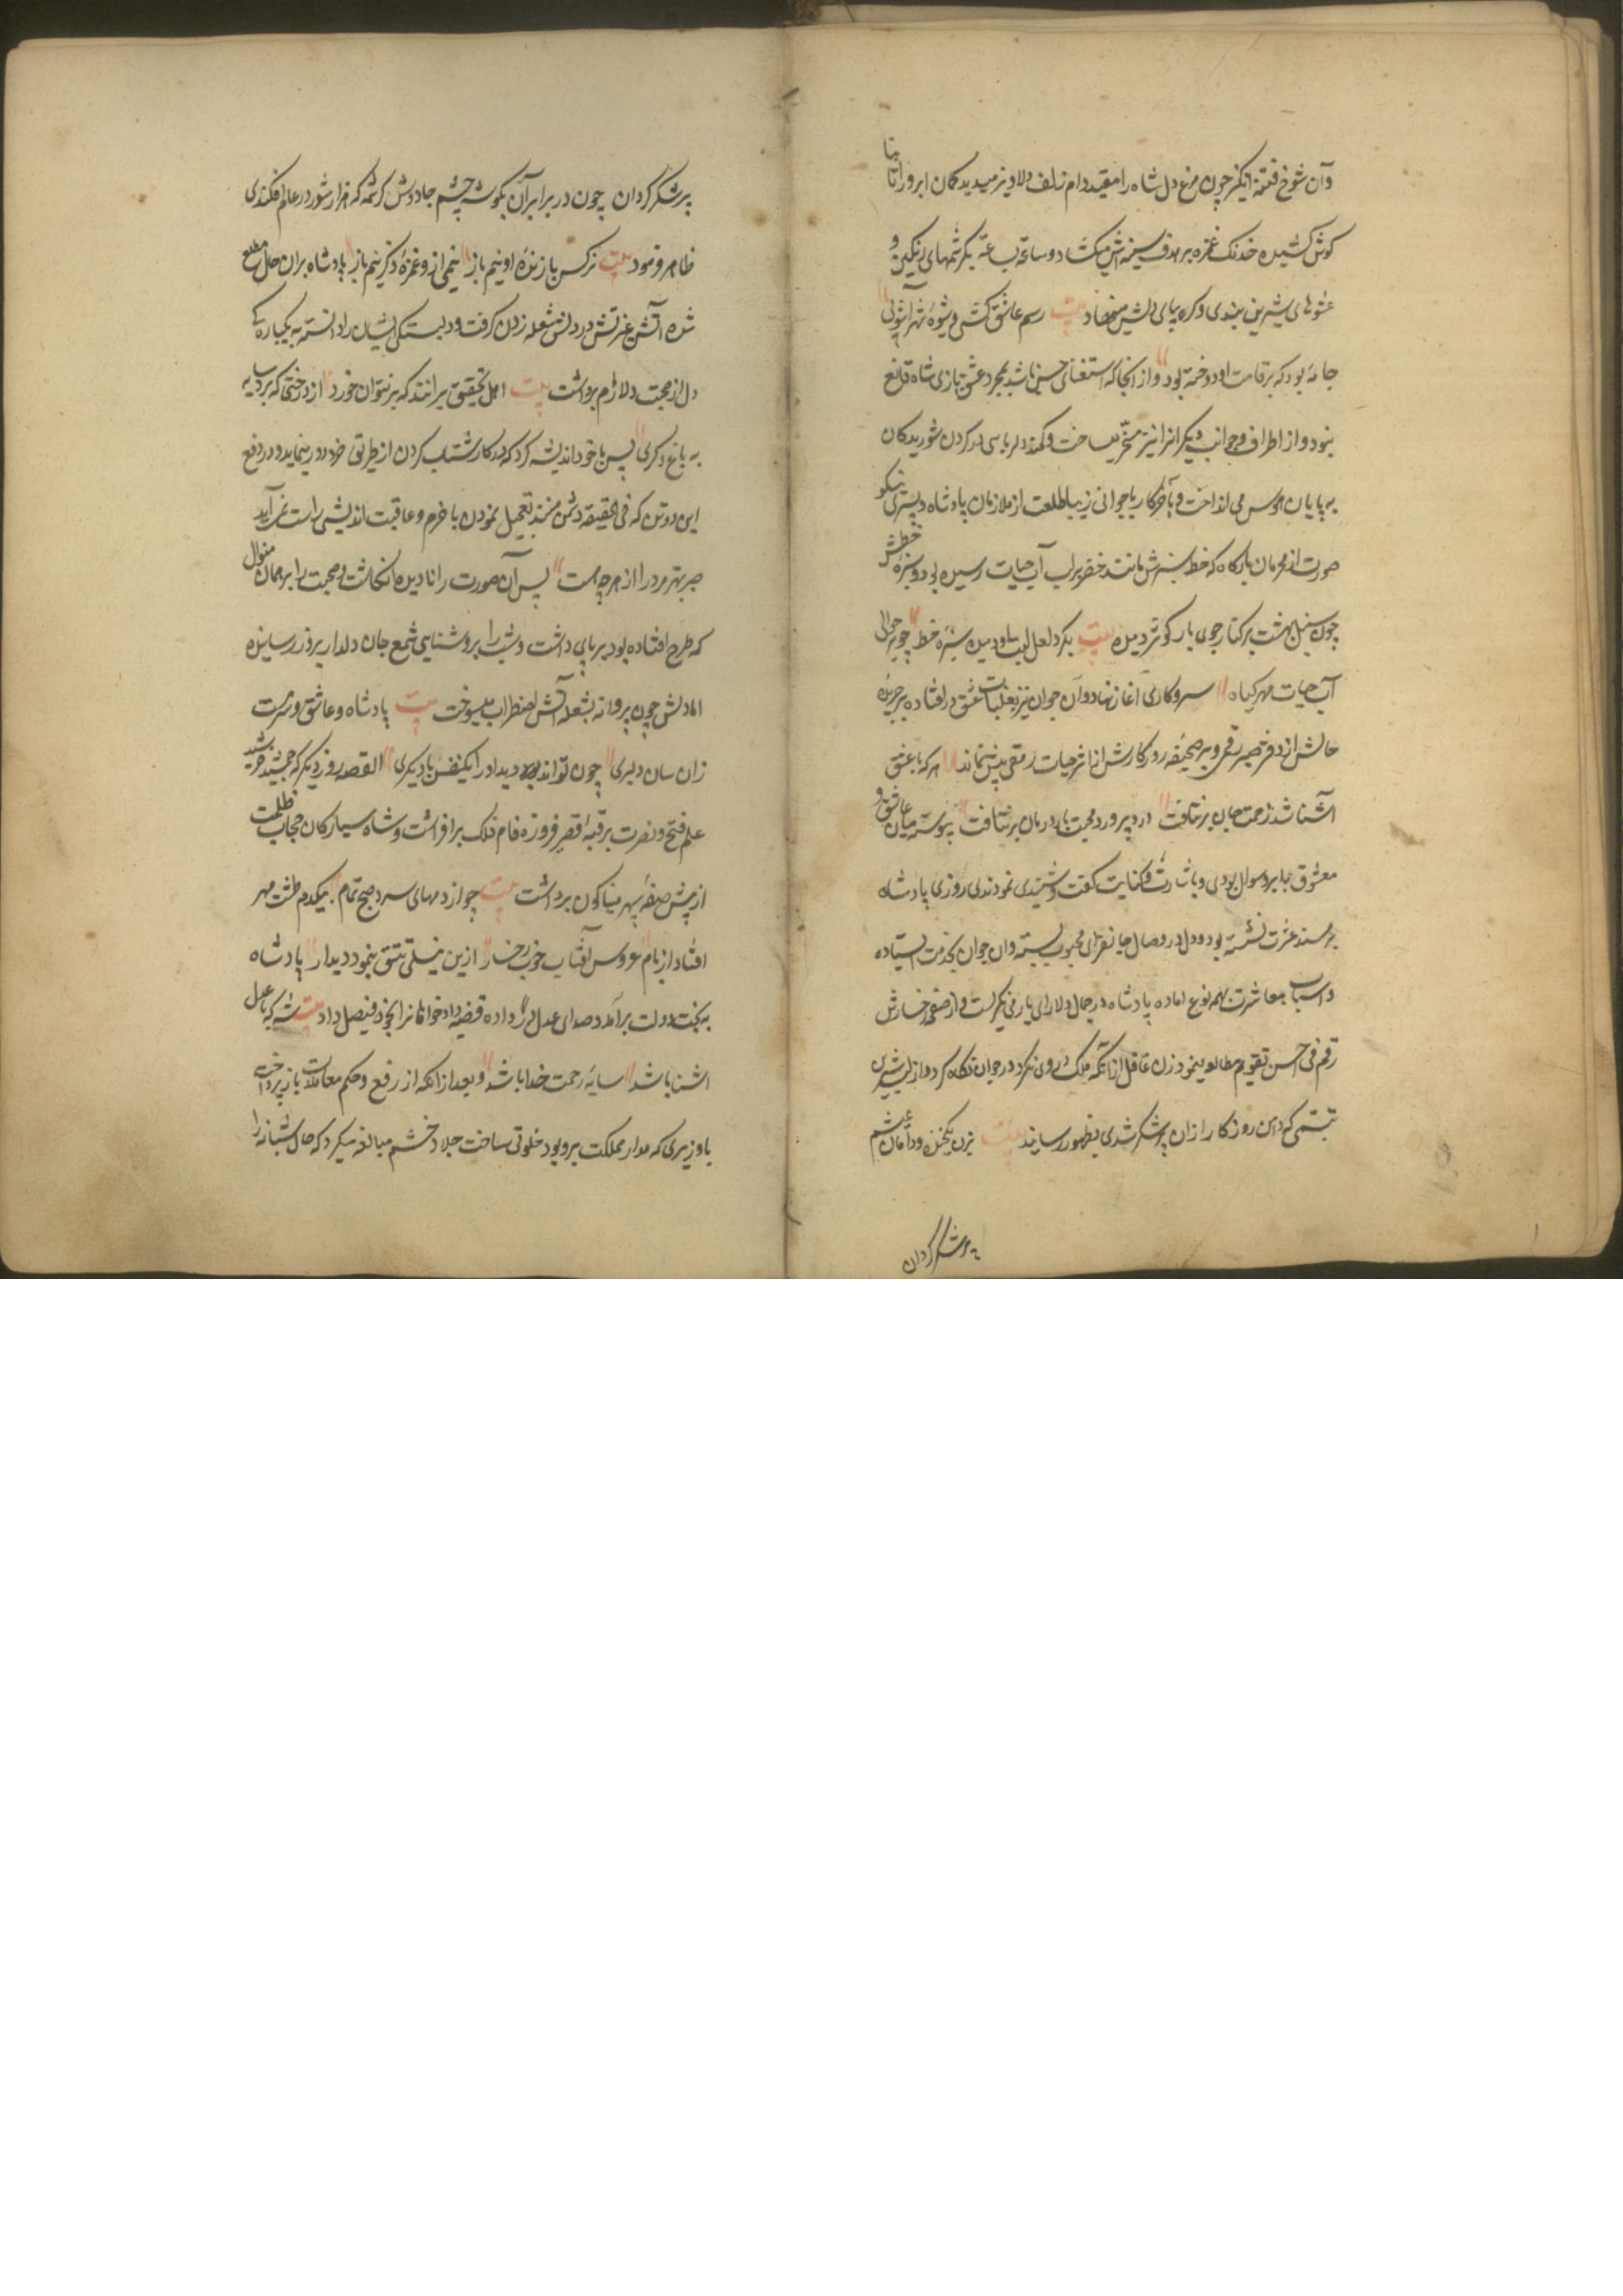 وآن شوخ فتنه انکیز چون مرغ دل شاه را مقید دام زلف دلاویز میدید کمان ابرو را تا بنا
کوش کشیده خدنک غمزه بر هدف سینه اش میکشاد و ساعة بساعة بکرشمهای رنکین و
عشوهای شیرین بندی و کره بپای دلش مینهاد بیت رسم عاشق کشی و شیوهٔ شهرآشوبی
جامهٔ بود که بر قامت او دوخته بود و از انجا که استغنای حسن باشد بمجرد عشق بازی شاه قانع
نبود و از اطراف و جوانب دیکرانرا نیز مسخر میساخت و کمند دلربایی در کردن شوریدکان
بی پایان هوس می انداخت و بآخر کار با جوانی زیبا طلعت از ملازمان پادشاه و پسری نیکو
صورت از محرمان بارکاه که خط سبزش مانند خضر بر لب آب حیات رسیده بود و سبزهٔ خطش
چون سنبل بهشت بر کنار جوی بار کوثر دمیده بیت بکرد لعل لبت او دمیده سبزهٔ خط چو بر حوالی
آب حیات مهر کیاه سر و کاری آغاز نهاد و آن جوان نیز بغلبات عشق در افتاده بر جریدهٔ
حالش از دفتر صبر رقمی و بر صحیفه روزکارش از اثر حیات رمقی بیش نماند هر که با عشق
آشنا شد زحمت جان بر نتافت درد پرورد محبت بار درمان بر نتافت پیوسته میان عاشق و
معشوق جواب و سوال بودی و باشارت و کنایت کفت و شنیدی نمودندی روزی پادشاه
بر مسند عشرت نشسته بود و دل در وصال جانفزای محبوب بسته و آن جوان بخدمت ایستاده
و اسباب معاشرت بهمه نوع اماده پادشاه در جمال دلارای یار می نکریست و از صفحهٔ رخسارش
رقم فی احسن تقویم مطالعه مینمود زن غافل از آنکه ملک در وی نکرد در جوان نکاه کرد و از لب شیرین
تبسمی که دامن روزکار از آن پر شکر شدی بظهور رسانید بیت بزن یکخنده و دامان عیشم
پر شکر کردان
پر شکر کردان چون در برابر آن بکوشه چشم جادووش کرشمه که هزار شور در عالم فکندی
ظاهر فرمود بیت نرکس باز ندهٔ او نیم باز نیمی از و غمزهٔ ذکر نیم باز پادشاه بر ان حال مطلع
شده آتش غیرتش در دلش شعله زدن کرفت و دلبستکی ایشان را دانسته به یکباره کی
دل از محبت دلارام برداشت بیت اهل تحقیق برانند که بر نتوان خورد از درختی که برد سایه
به باغ دکری پس با خود اندیشه کرد که در کار شتاب کردن از طریق خرد دور مینماید و در دفع
این دو تن که فی الحقیقه دشمن منند تعجیل نمودن با حزم و عاقبت اندیشی راست نمی آید
صبر بهتر مرد را از هر چه هست پس آن صورت را نادیده انکاشت و صحبت را بر همان منوال
که طرح افتاده بود بر پای داشت و شب را بروشنایی شمع جان دلدار بروز رسانیده
اما دلش چون پروانه بشعله آتش اضطراب میسوخت بیت پادشاه و عاشق و سرمست
زان سان دلبری چون تواند دید اور ایکنفس با دیکری القصه روز دیکر که جمشید خورشید
علم فتح و نصرت بر قبهٔ قصر فروزه فام فلک برافراشت و شاه سیارکان حجاب ظلمت
از پیش صفهٔ سپهر مینا کون برداشت بیت چو از دمهای سرد صبح تمام بیکدم طشت مهر
افتاد از بام عروس آفتاب خوب رخسار ازین نیلی تتق بنمود دیدار پادشاه
به تخت دولت برآمد و صدای عدل در داده قضیه داد خواهانرا بخود فیصل داد بیت شه که با عدل
اشنا باشد سایهٔ رحمت خدا باشد و بعد از انکه از رفع و حکم معاملات باز پرداخت
با وزیری که مدار مملکت برو بود خلوتی ساخت جلاد خشم مبالغه میکرد که حال شبانه را